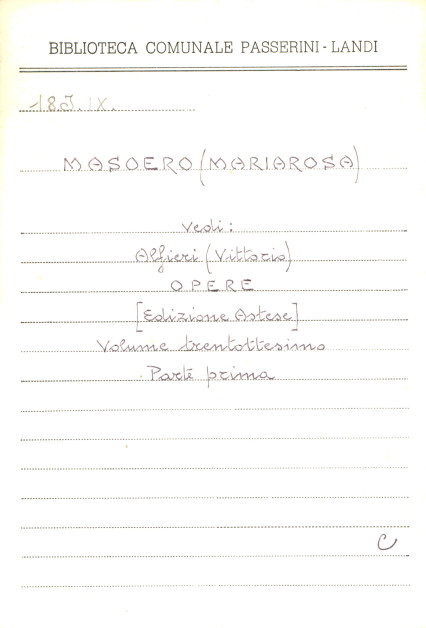 BIBLIOTECA COMUNALE PASSERINI - LANDI
18J.IX.
MASOERO (MARIAROSA)
Vedi:
Alfieri (Vittorio)
OPERE
[Edizione Astese]
Volume trentottesimo
Parte prima
C